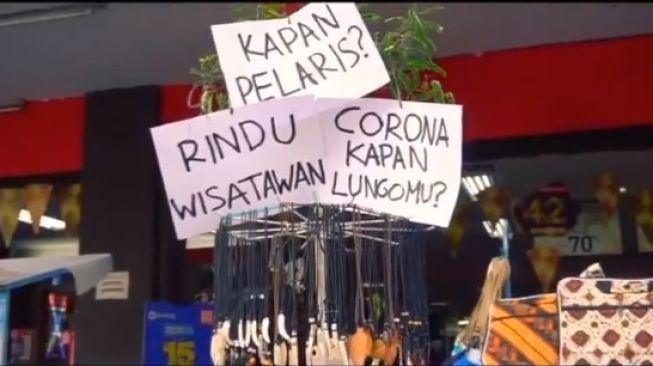 KAPAN
PELARIS?
RINDU
WISATAWAN
CORONA
KAPAN
LUNGOMU?
42
70
15